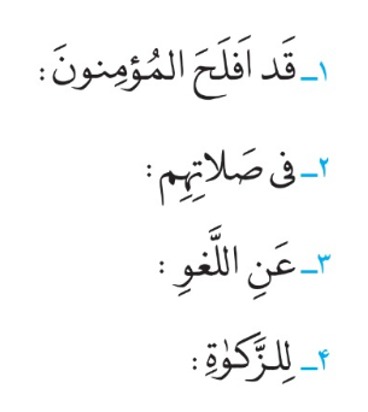 ۱ــ قَد اَفلَحَ المُؤمِنونَ :
۲ــ فی صَلاتِهِم :
۳ــ عَنِ اللَّغوِ :
۴ــ لِلزَّکوٰةِ :